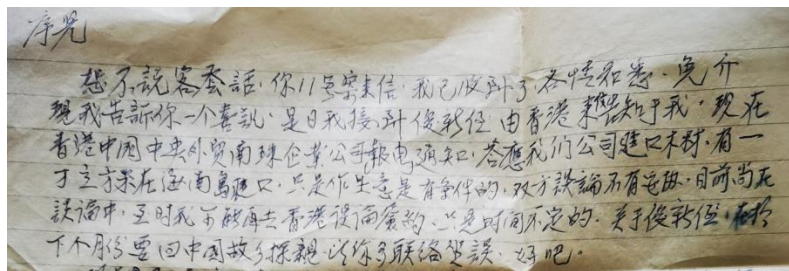 序兄
想不説客套話，你11号寄来信，我已收到了各情知悉，免介
現我告訴你一个喜訊，是日我接到俊新侄由香港来告知于我，現在
香港中国中央外贸南珠企業公司報电通知，答應我们公司進口木材，有一
丁立方米在海南島進口，只是作生意是有条件的，双方談論不有妥協，目前尚在
談論中，至时我可能再去香港談論簽約，只是时间不定的，关于俊新侄，在於
下个月份要回中国故乡探親，以你多联络望談，好吧。